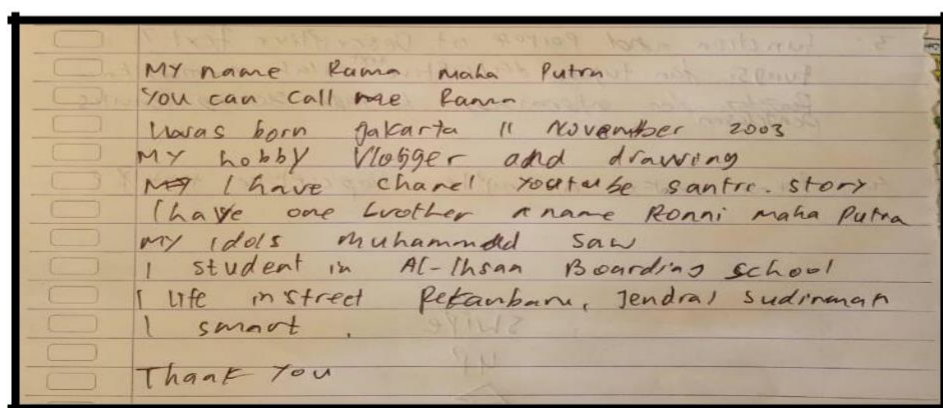 My name Rama Maha Putra
You can call me Rama
I was born Jakarta 11 November 2003
My hobby Vlogger and drawing
I have chanel youtube santri.story
I have one brother name Ronni Maha Putra
My idols Muhammad saw
I student in Al-Ihsan Boarding school
I Life in street Pekanbaru, Jendral Sudirman
I smart.
Thank You